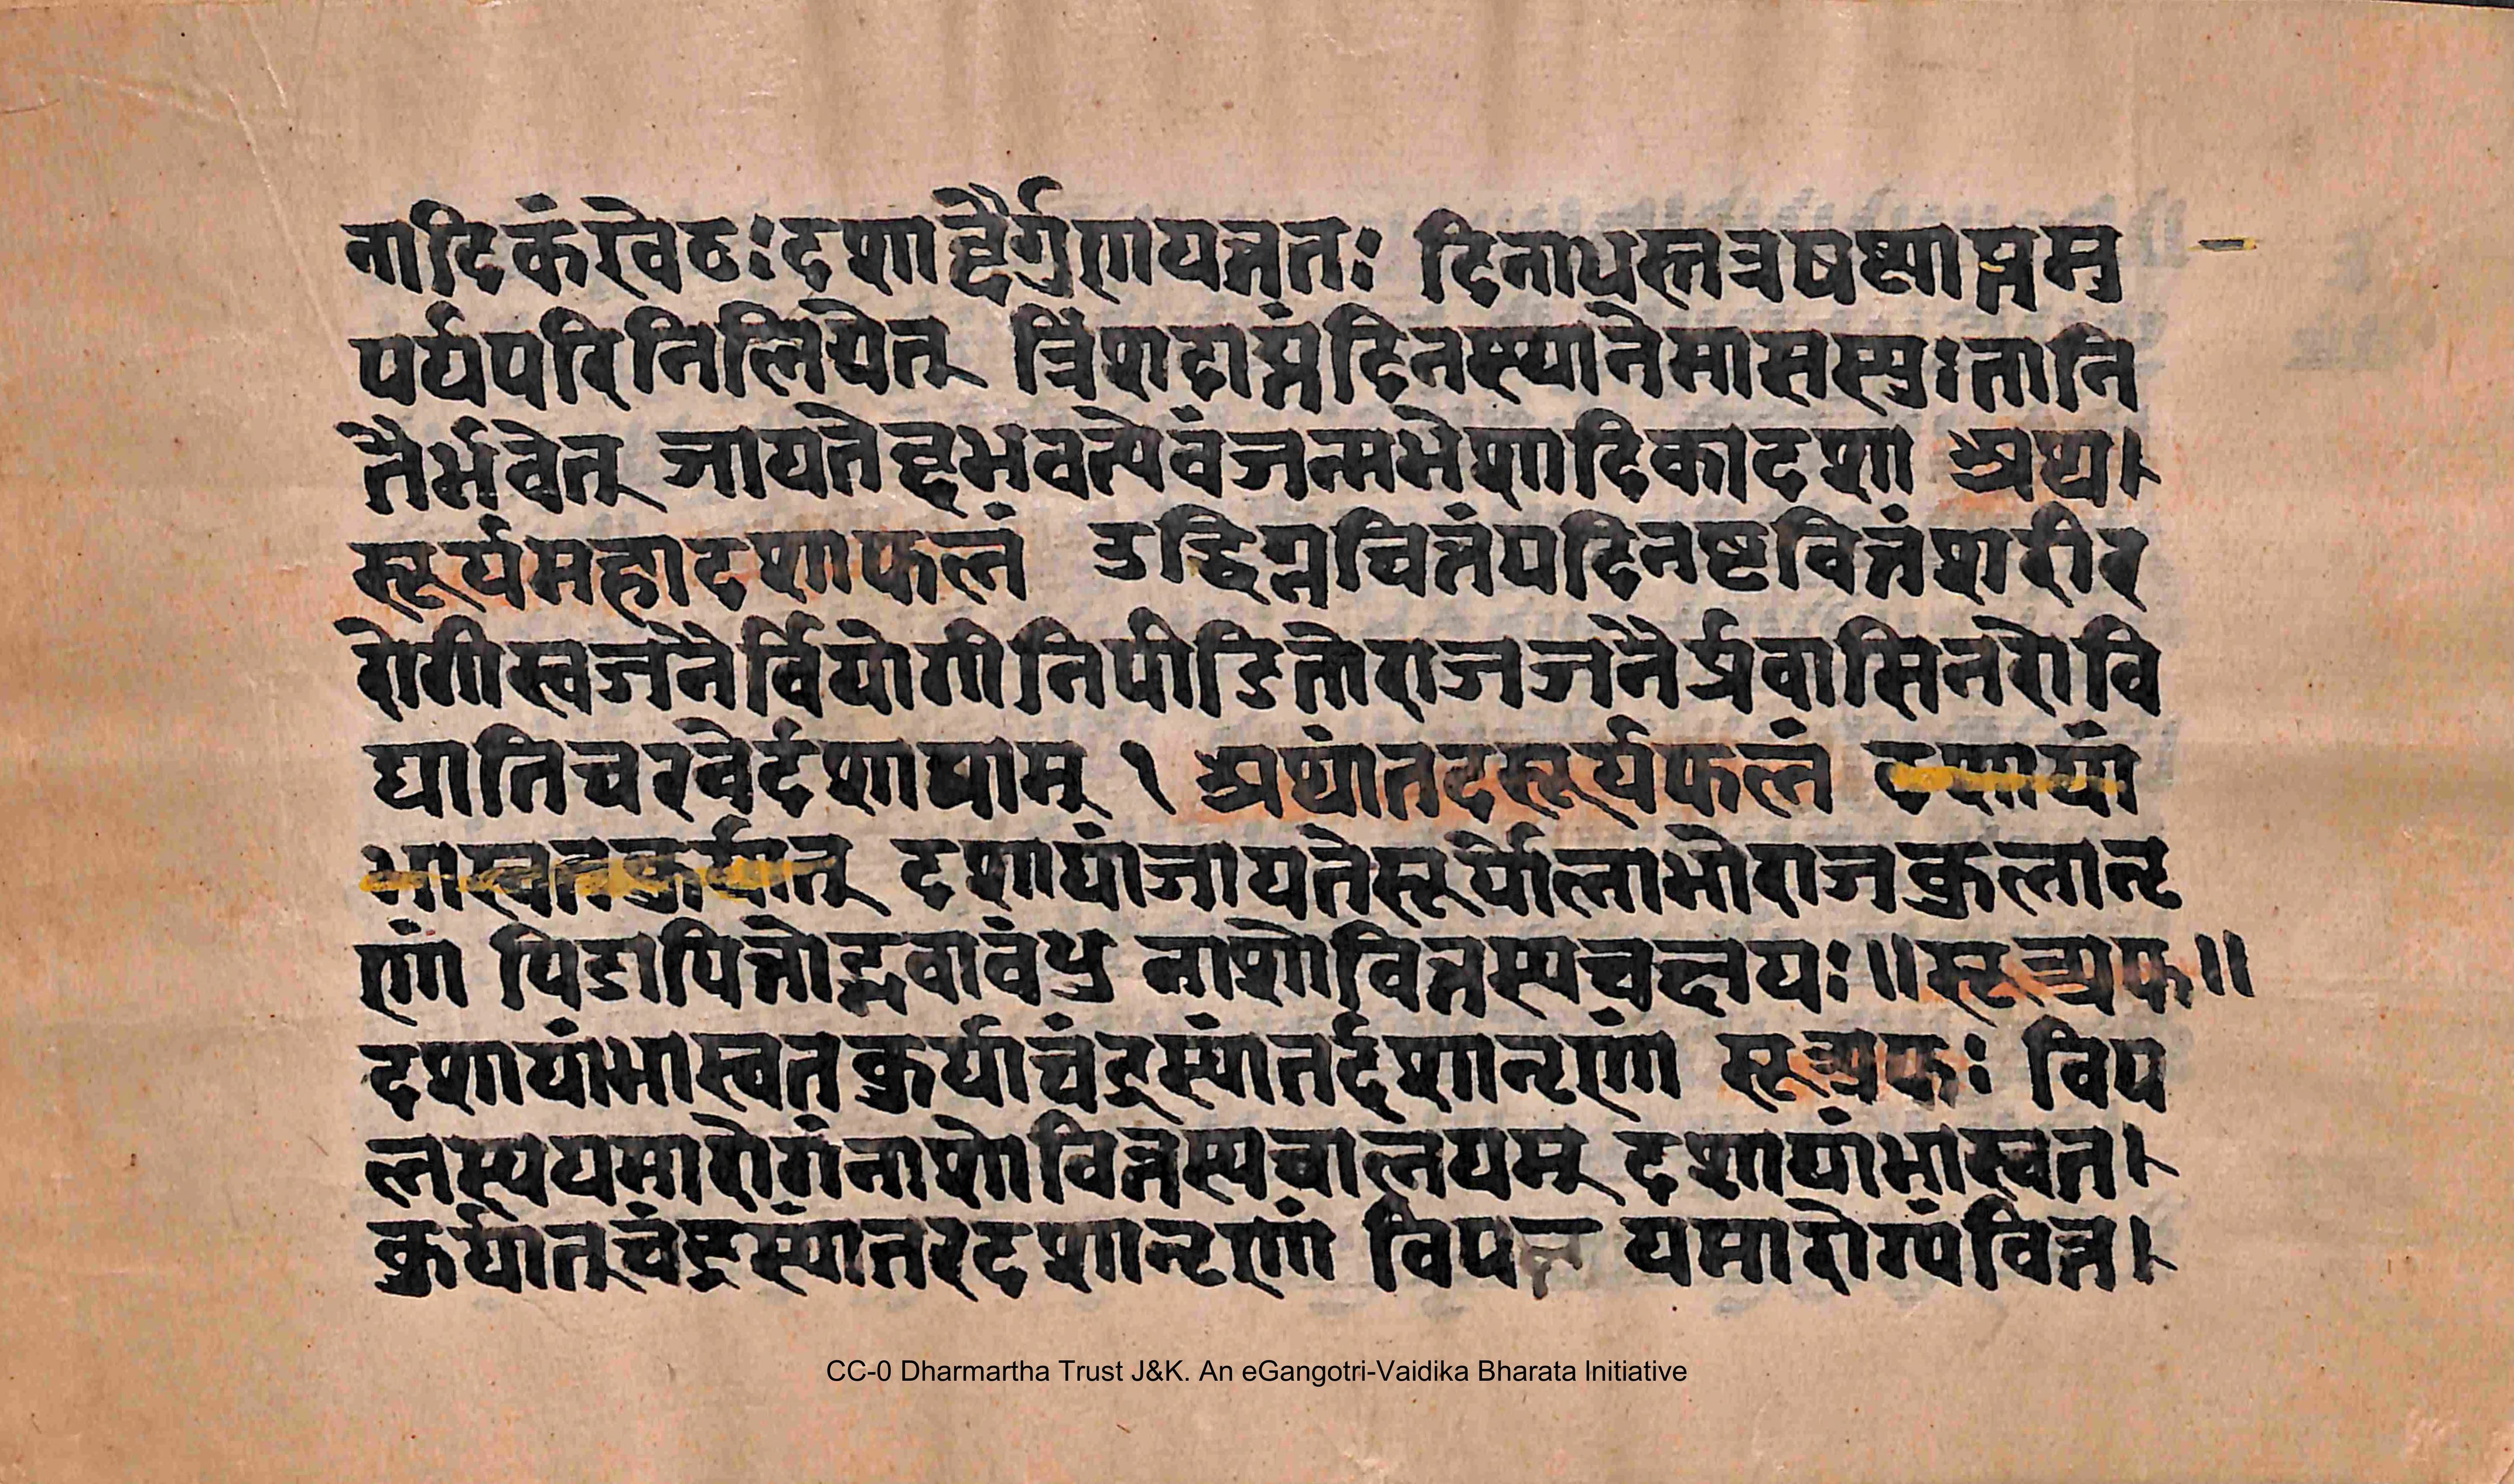 नादिकंरवेठः दशाब्दैर्गुणयन्नतः दिनाधस्तत्रषष्ट्याप्तमु
पर्यपरिनिलियेत् त्रिंशदाप्तंदिनस्यानेमासस्युःतानि
तैर्भवेत् जायतेद्दभवत्येवंजन्मभेशादिकादशा अथ।
सूर्यमहादशाफलं उद्विग्नचित्तंपदिनष्टवित्तंशरीर
रोगीस्वजनैर्वियोगीनिपीडितोराजजनैर्प्रवासिनरोवि
द्यातिचरवेर्दशायाम् १ अथांतदसूर्यफलं दशायां
भास्वतकुर्यात् दशायांजायतेसूर्योलाभोराजकुलानृ
णां पिडापित्तोद्भवावंधु नाशोवित्तस्यचद्दायः॥सूच्यफ॥
दशायांभास्वतकुर्याचंद्रस्यांतर्द्दशानृणां सूच्यफः विप
लस्ययमारोगंनाशोवित्तस्यचालयम् दशायांभास्वत।
कुर्यात्चंद्रस्यांतरदशानृणां विप यमारोग्यंवित्त।
CC-0 Dharmartha Trust J&K. An eGangotri-Vaidika Bharata Initiative